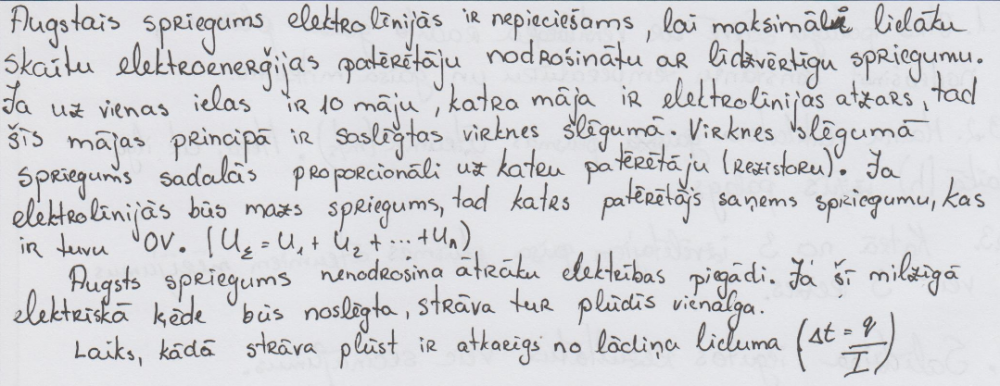 Augstais spriegums elektrolīnijās ir nepieciešams, lai maksimāli lielāku
skaitu elektroenerģijas patērētāju nodrošinātu ar līdzvērtīgu spriegumu.
Ja uz vienas ielas ir 10 māju, katra māja ir elektrolīnijas atzars, tad
šīs mājas principā ir saslēgtas virknes slēgumā. Virknes slēgumā
spriegums sadalās proporcionāli uz katru patērētāju (rezistoru). Ja
elektrolīnijās būs mazs spriegums, tad katrs patērētājs saņems spriegumu, kas
ir tuvu 0V. (U₂ = U₁ + U₂ + ... + Uₙ)
Augsts spriegums nenodrošina ātrāku elektrības piegādi. Ja šī milzīgā
elektriskā ķēde būs noslēgta, strāva tur plūdīs vienalga.
Laiks, kādā strāva plūst ir atkarīgs no lādiņa lieluma (Δt = q/I)